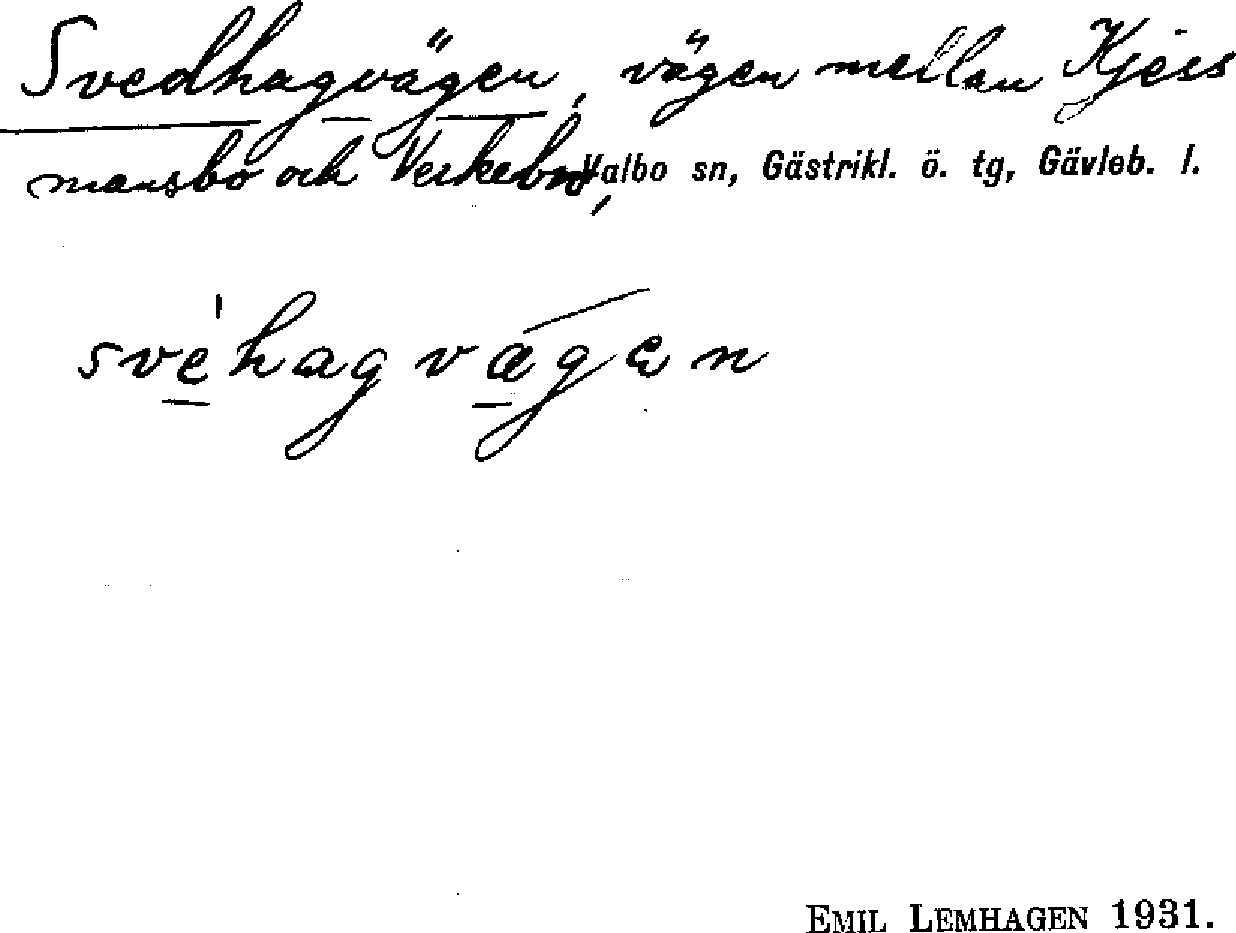 Svedhagvägen, vägen mellan Kjess
mansbo och Verkebo, Valbo sn, Gästrikl. ö. tg, Gävleb. l.
svéhagvägen
EMIL LEMHAGEN 1931.